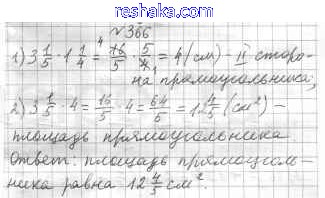 reshaka.com
№366
1) 3 1/5 · 1 1/4 = 16/5 · 5/4 = 4 (см) - II сторо-
на прямоугольника;
2) 3 1/5 · 4 = 16/5 · 4 = 64/5 = 12 4/5 (см²) -
площадь прямоугольника
Ответ: площадь прямоуголь-
ника равна 12 4/5 см².